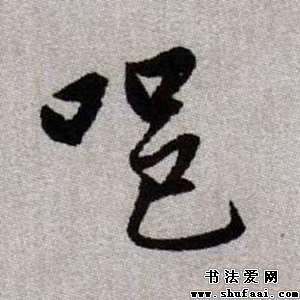 唈
书法爱网
www.shufaai.com